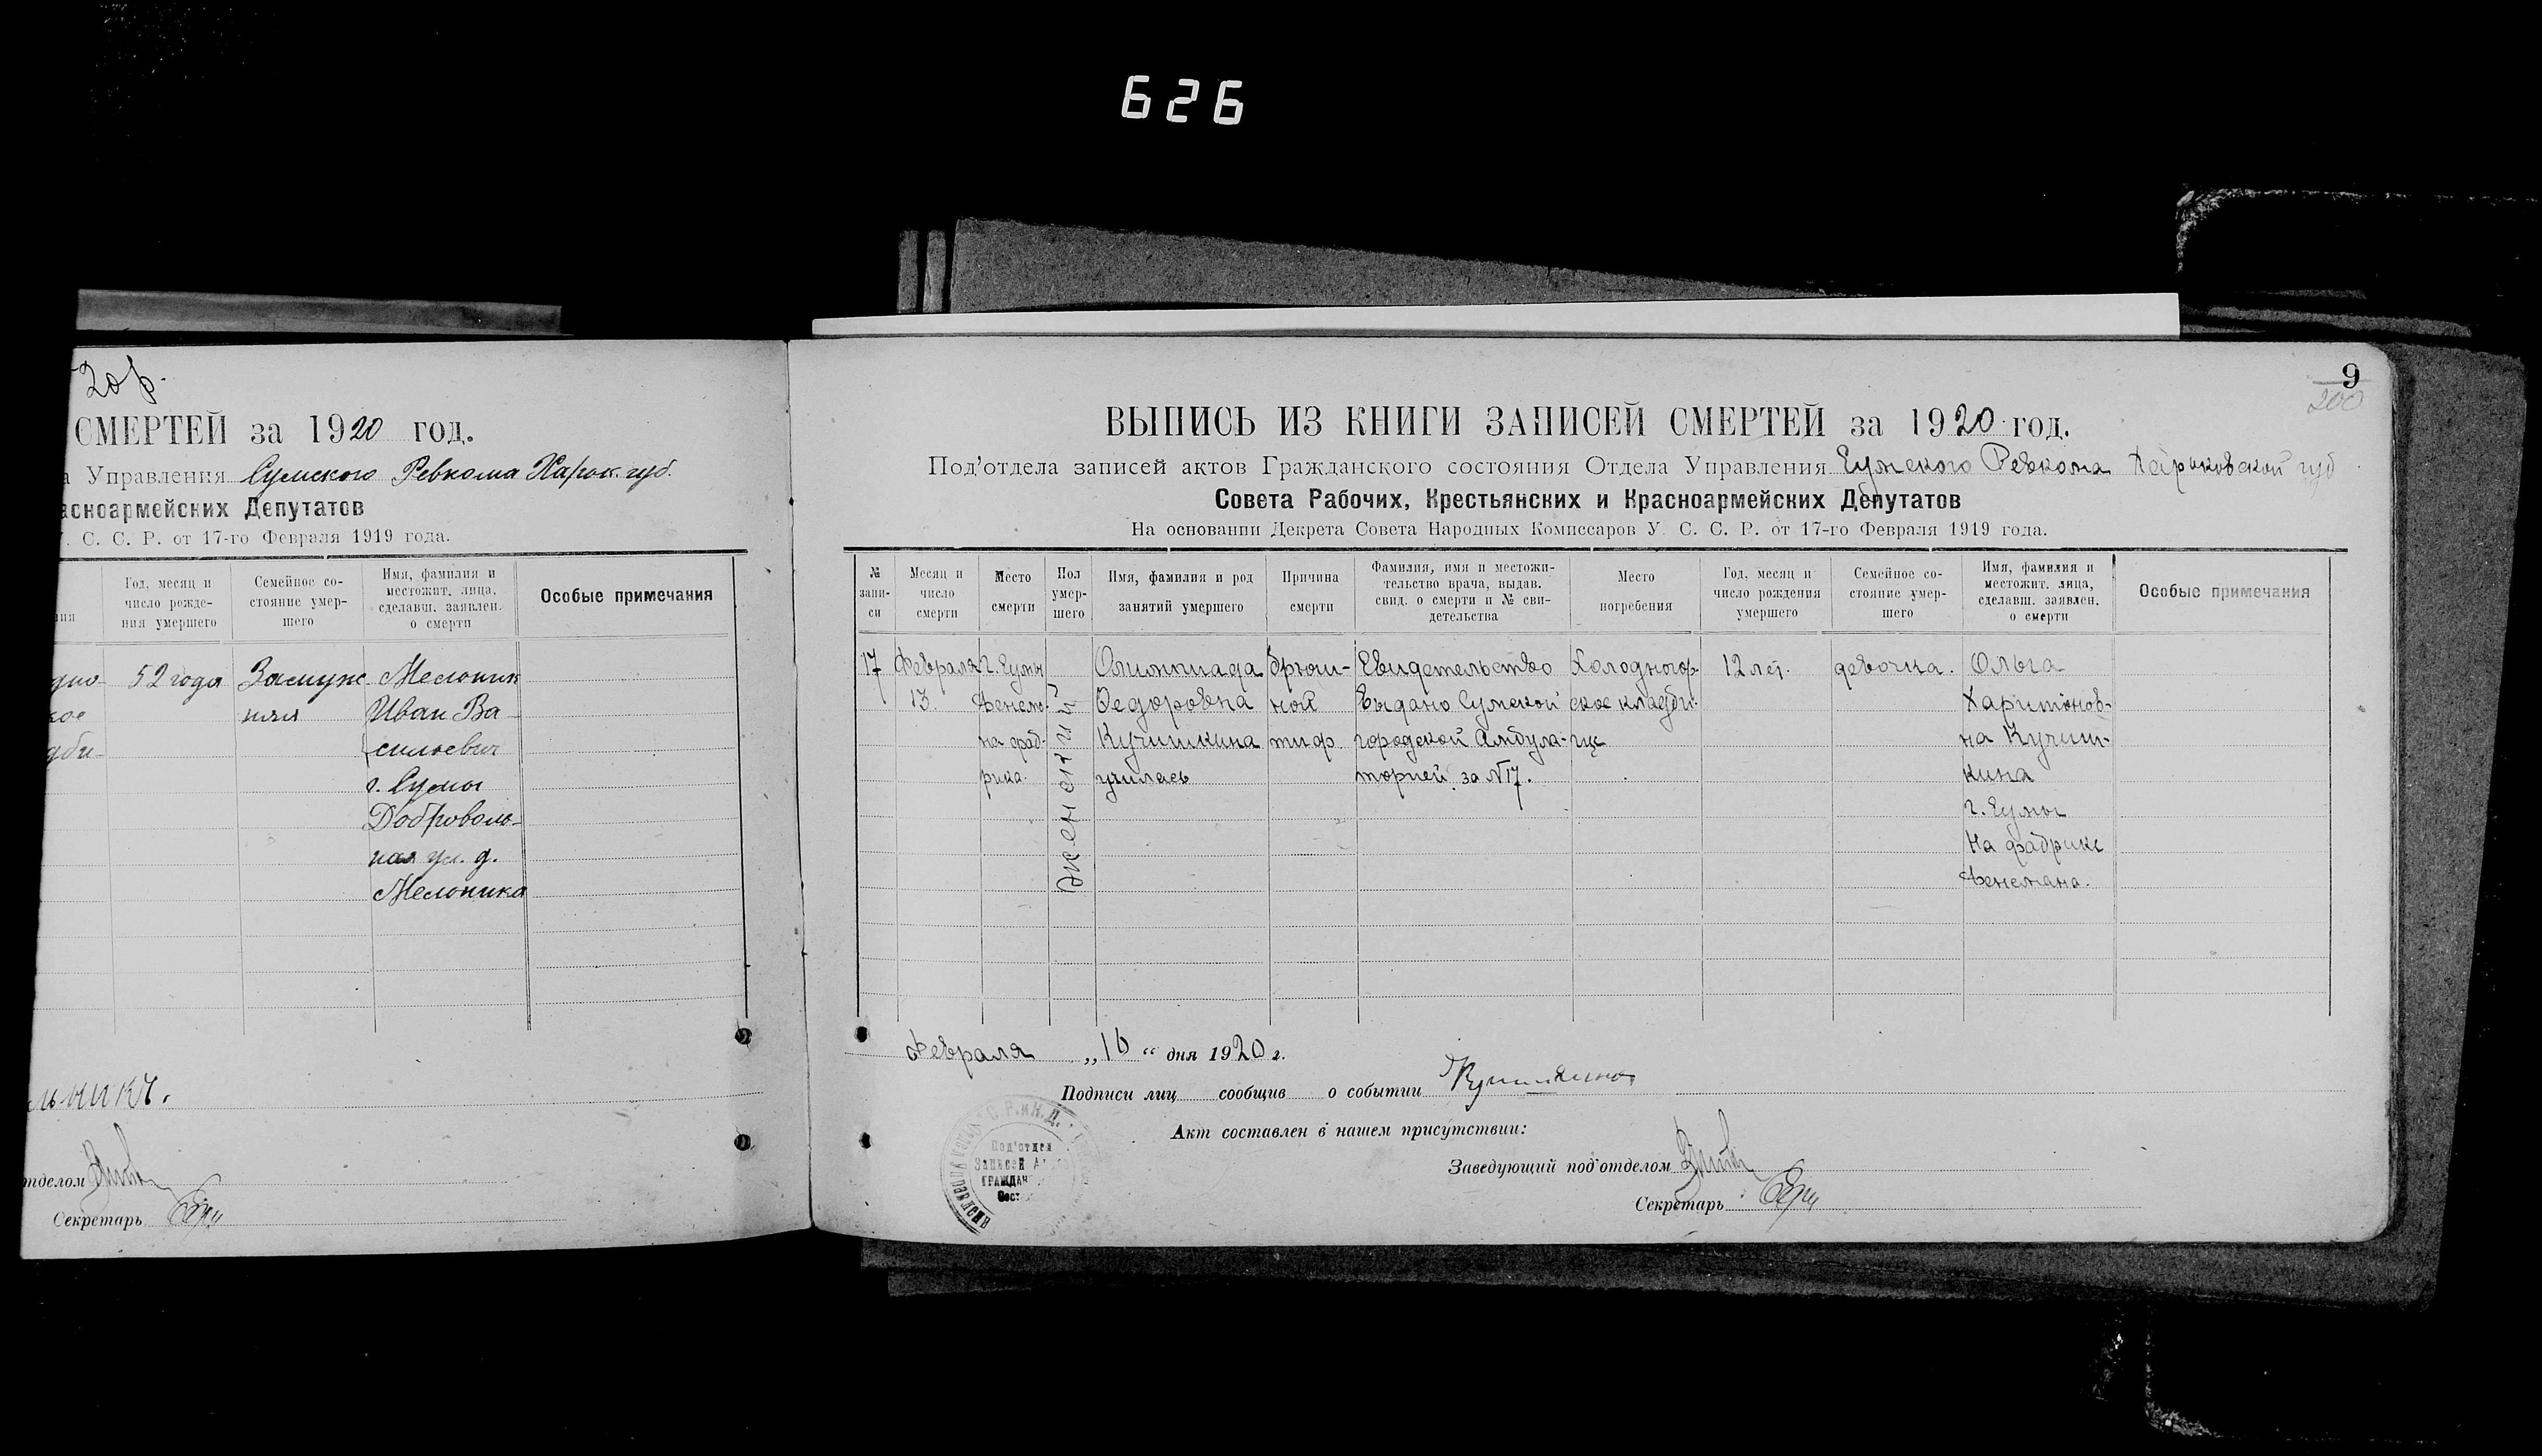 626
20 р.
СМЕРТЕЙ за 1920 год.
а Управления Сумского Ревкома Харьк. губ.
асноармейских Депутатов
У. С. С. Р. от 17-го Февраля 1919 года.
ния
Год, месяц и
число рожде-
ния умершего
Семейное со-
стояние умер-
шего
Имя, фамилия и
местожит. лица,
сделавш. заявлен.
о смерти
Особые примечания
дно-
кое
дби-
52 года
Замуж
няя
Мельник
Иван Ва-
сильевич
г. Сумы
Доброволь-
ная ул. д.
Мельника
льникъ.
тделом
Секретарь
9
200
ВЫПИСЬ ИЗ КНИГИ ЗАПИСЕЙ СМЕРТЕЙ за 1920 год.
Под'отдела записей актов Гражданского состояния Отдела Управления Сумского Ревкома Харьковской губ
Совета Рабочих, Крестьянских и Красноармейских Депутатов
На основании Декрета Совета Народных Комиссаров У. С. С. Р. от 17-го Февраля 1919 года.
№
запи-
си
Месяц и
число
смерти
Место
смерти
Пол
умер-
шего
Имя, фамилия и род
занятий умершего
Причина
смерти
Фамилия, имя и местожи-
тельство врача, выдав.
свид. о смерти и № сви-
детельства
Место
погребения
Год, месяц и
число рождения
умершего
Семейное со-
стояние умер-
шего
Имя, фамилия и
местожит. лица,
сделавш. заявлен.
о смерти
Особые примечания
17
Февраля
13.
г. Сумы
Фенем-
на фаб-
рика.
Женский
Олимпиада
Федоровна
Кучишкина
училась
брюш-
ной
тиф
Свидетельство
выдано Сумской
городской Амбула-
торией за №17.
Холодногор-
ское кладби-
ще
12 лет.
девочка.
Ольга
Харитонов-
на Кучиш-
кина
г. Сумы
На фабрике
Фенемана.
Февраля „16“ дня 1920 г.
Подписи лиц сообщив о событии Кучишкина
Акт составлен в нашем присутствии:
Заведующий под'отделом
Секретарь
С. Р. и К. Д.
Под'отдел
Записей
ГРАЖДАН